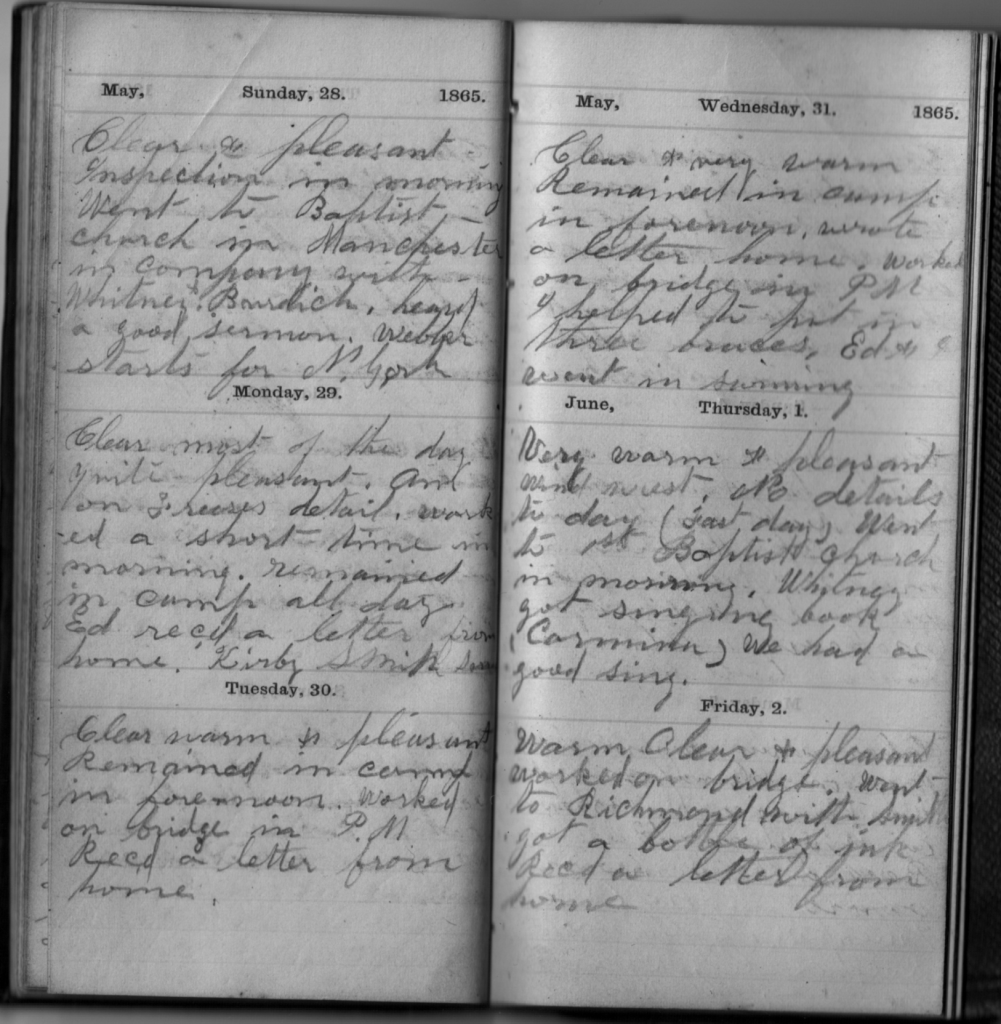 May, Sunday, 28. 1865.
Clear & pleasant
Inspection in morning
Went to Baptist
church in Manchester
in company with
Whitney, Burdich, heard
a good sermon. Webber
starts for N. York
Monday, 29.
Clear most of the day
quite pleasant. And
on Freezes detail. work
-ed a short time in
morning. remained
in camp all day
Ed recd a letter from
home. Kirby Smith
Tuesday, 30.
Clear warm & pleasant
Remained in camp
in forennoon. Worked
on bridge in P.M
Recd a letter from
home.
May, Wednesday, 31. 1865.
Clear & very warm
Remained in camp
in forenoon, wrote
a letter home. Worked
on bridge in P M
I helped to put in
three braces, Ed &
went in swimming
June, Thursday, 1.
Very warm & pleasant
wind west. No details
to day (Fast day) Went
to 1st Baptist church
in morning. Whitney
got singing book
(Carmina) We had a
good sing.
Friday, 2.
Warm Clear & pleasant
worked on bridge. Went
to Richmond with Smith
got a bottle of ink
Recd a letter from
home